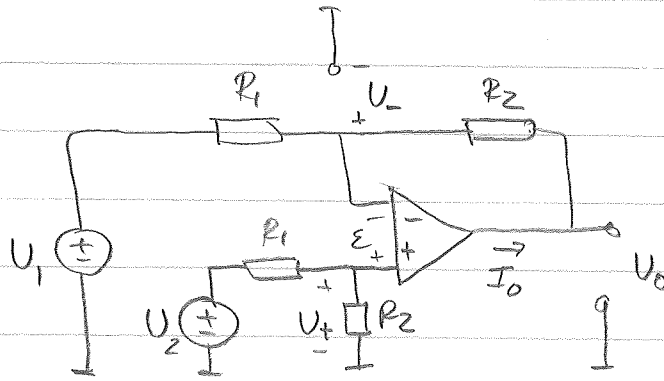 -
R₁ + U₋ R₂
U₁ ± R₁ ε - + - + → I₀ U₀
U₂ ± + U₊ - R₂